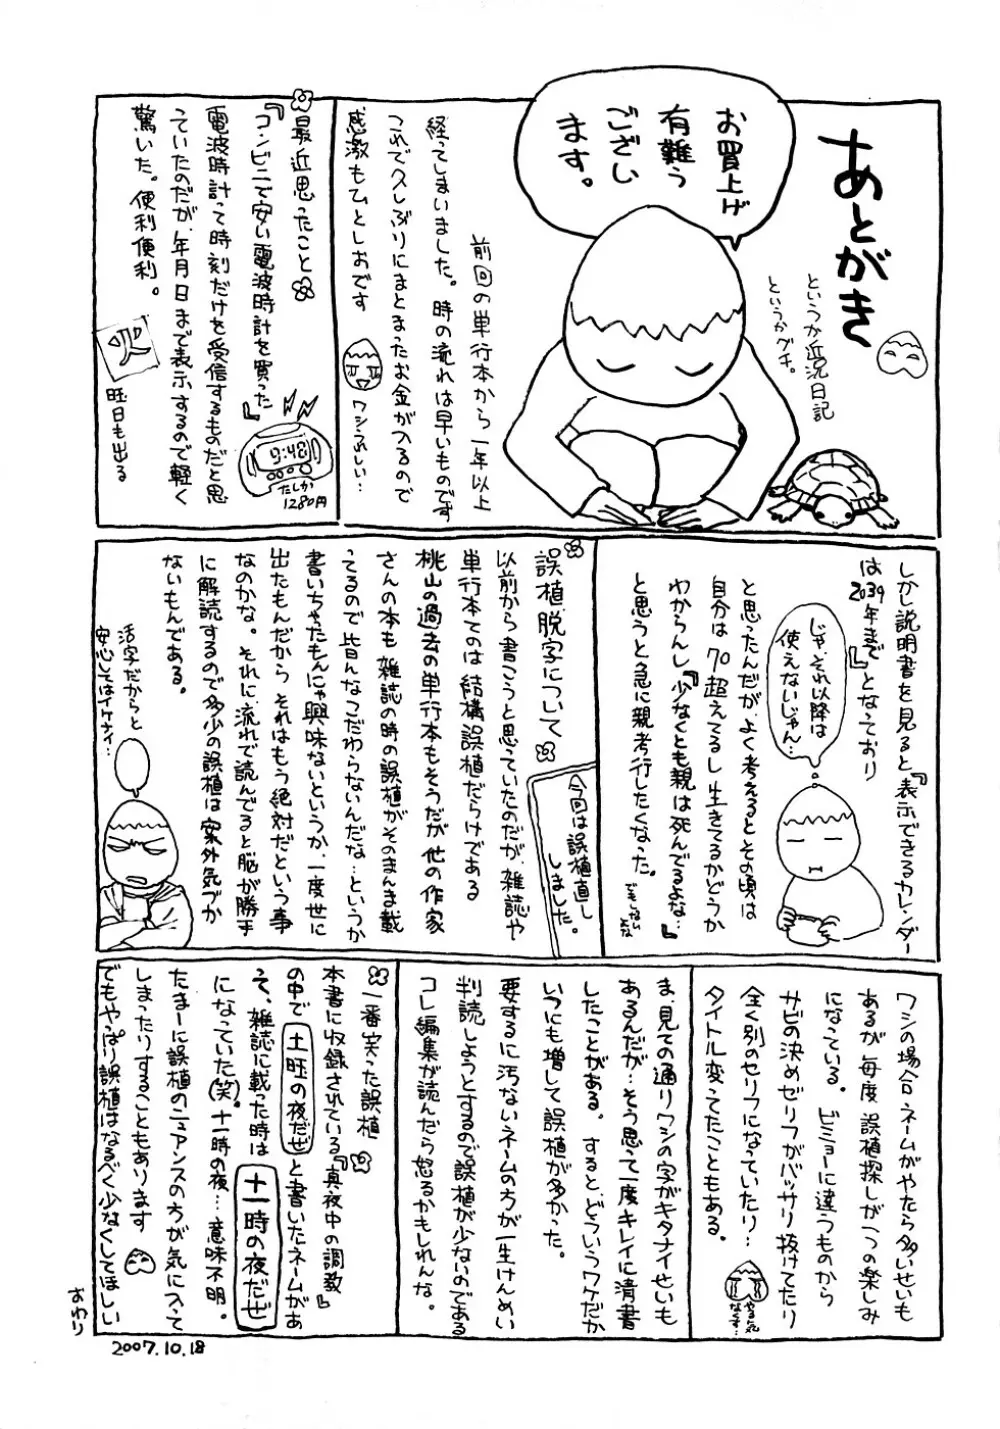 あとがき
というか近況日記
というかグチ。
お買上げ
有難う
ござい
ます。
前回の単行本から一年以上
経ってしまいました。時の流れは早いものです
これで久しぶりにまとまったお金が入るので
感激もひとしおです
ワシうれしい…
最近思ったこと
『コンビニで安い電波時計を買った』
電波時計って時刻だけを受信するものだと思
っていたのだが、年月日まで表示するので軽く
驚いた。便利便利。
9:48
たしか
1280円
旺日も出る
しかし説明書を見ると『表示できるカレンダー
は2039年まで』となっており
じゃ、それ以降は
使えないじゃん…
と思ったんだが、よく考えるとその頃は
自分は70超えてるし生きてるかどうか
わからんし『少なくとも親は死んでるよな…』
と思うと急に親考行したくなった。
でもしない
だよな
誤植脱字について
今回は誤植直し
しました。
以前から書こうと思っていたのだが、雑誌や
単行本ては結構誤植だらけである
桃山の過去の単行本もそうだが他の作家
さんの本も雑誌の時の誤植がそのまんま載
ってるので皆んなこだわらないんだな…というか
書いちゃたもんにゃ興味ないというか、一度世に
出たもんだから それはもう絶対だという事
なのかな。それに流れで読んでると脳が勝手
に解読するので多少の誤植は案外気づか
ないもんである。
活字だからと
安心してはイケナイ…
ワシの場合、ネームがやたら多いせいも
あるが毎度 誤植探しが一つの楽しみ
になっている。ビミョーに違うものから
サビの決めゼリフがバッサリ抜けてたり
全く別のセリフになっていたり…
タイトル変ってたこともある。
やる気
なくす…
ま、見ての通りワシの字がキタナイせいも
あるんだが…そう思って一度キレイに清書
したことがある。するとどういうワケだか
いつにも増して誤植が多かった。
要するに汚ないネームの方が一生けんめい
判読しようとするので誤植が少ないのである
コレ編集が読んだら怒るかもしれんな。
一番笑った誤植
本書に収録されている『真夜中の調教』
の中で 土旺の夜だぜ と書いたネームがあ
って、雑誌に載った時は 十一時の夜だぜ
になっていた(笑)。十一時の夜…意味不明。
たまーに誤植のニュアンスの方が気に入って
しまったりすることもあります
でもやっぱり誤植はなるべく少なくしてほしい
おわり
2007.10.18